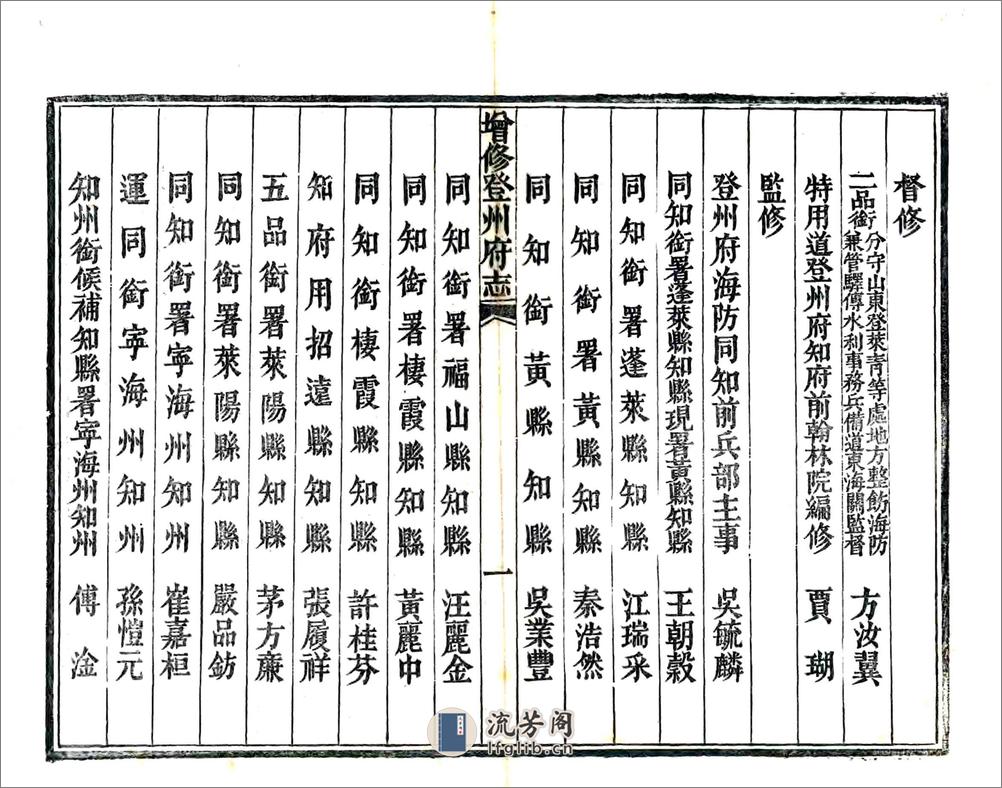 督修
二品銜分守山東登萊靑等處地方整飭海防兼管驛傳水利事務兵備道東海關監督 方汝翼
特用道登州府知府前翰林院編修 賈瑚
監修
登州府海防同知前兵部主事 吳毓麟
同知銜署蓬萊縣知縣現署黃縣知縣 王朝穀
同知銜署蓬萊縣知縣 江瑞采
同知銜署黃縣知縣 秦浩然
同知銜黃縣知縣 吳業豐
增修登州府志 一
同知銜署福山縣知縣 汪麗金
同知銜署棲霞縣知縣 黃麗中
同知銜棲霞縣知縣 許桂芬
知府用招遠縣知縣 張履祥
五品銜署萊陽縣知縣 茅方廉
同知銜署萊陽縣知縣 嚴品鈁
同知銜署寧海州知州 崔嘉桓
運同銜寧海州知州 孫愷元
知州銜候補知縣署寧海州知州 傅淦
流芳阁
lfglib.cn